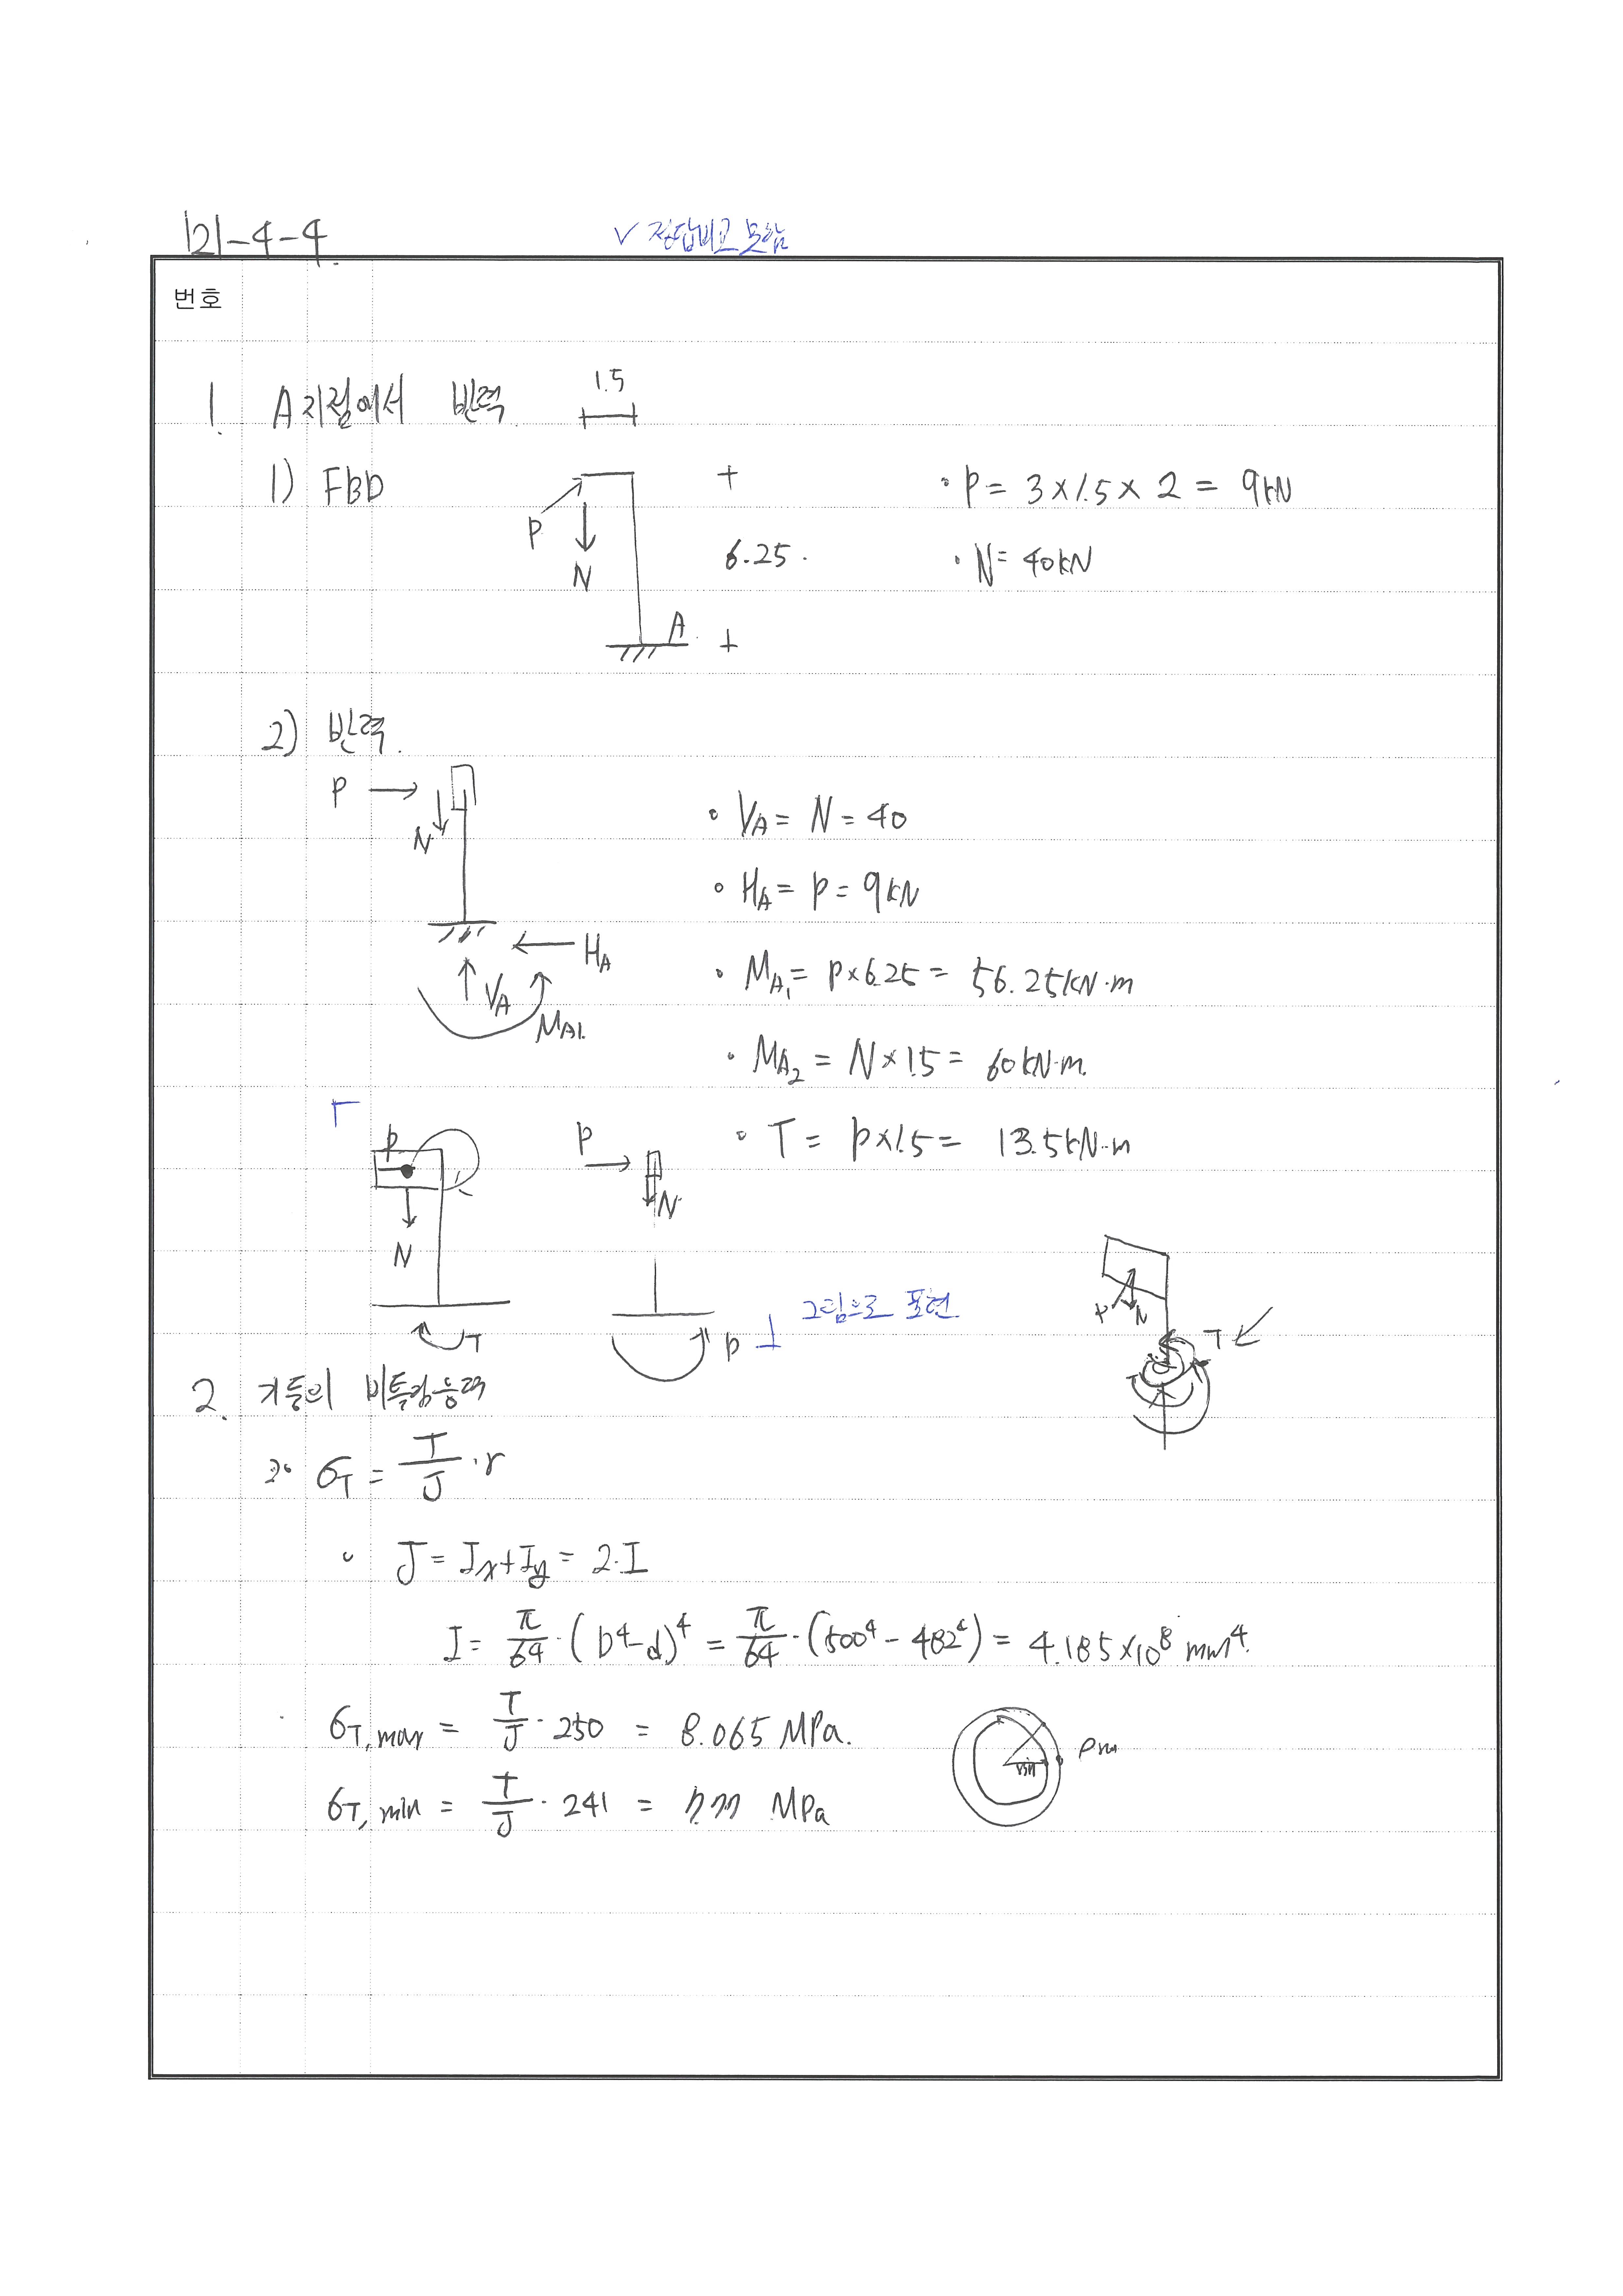 121-4-4.
✓ 정답비교 못함
번호
1. A지점에서 반력.
1.5
1) FBD
P
N
6.25
A
• P = 3×1.5×2 = 9kN
• N = 40kN
2) 반력.
P
N
H_A
V_A
M_A1
• V_A = N = 40
• H_A = P = 9kN
• M_A1 = P×6.25 = 56.25kN·m
• M_A2 = N×1.5 = 60kN·m.
• T = P×1.5 = 13.5kN·m
P
N
T
P
N
P
그림으로 표현
P
N
T
2. 기둥의 비틀림응력
σ_T = T/J · r
• J = I_x + I_y = 2·I
I = π/64 · (D⁴-d)⁴ = π/64 · (500⁴ - 482⁴) = 4.185×10⁸ mm⁴.
σ_T,max = T/J · 250 = 8.065 MPa.
σ_T,min = T/J · 241 = 7.77 MPa